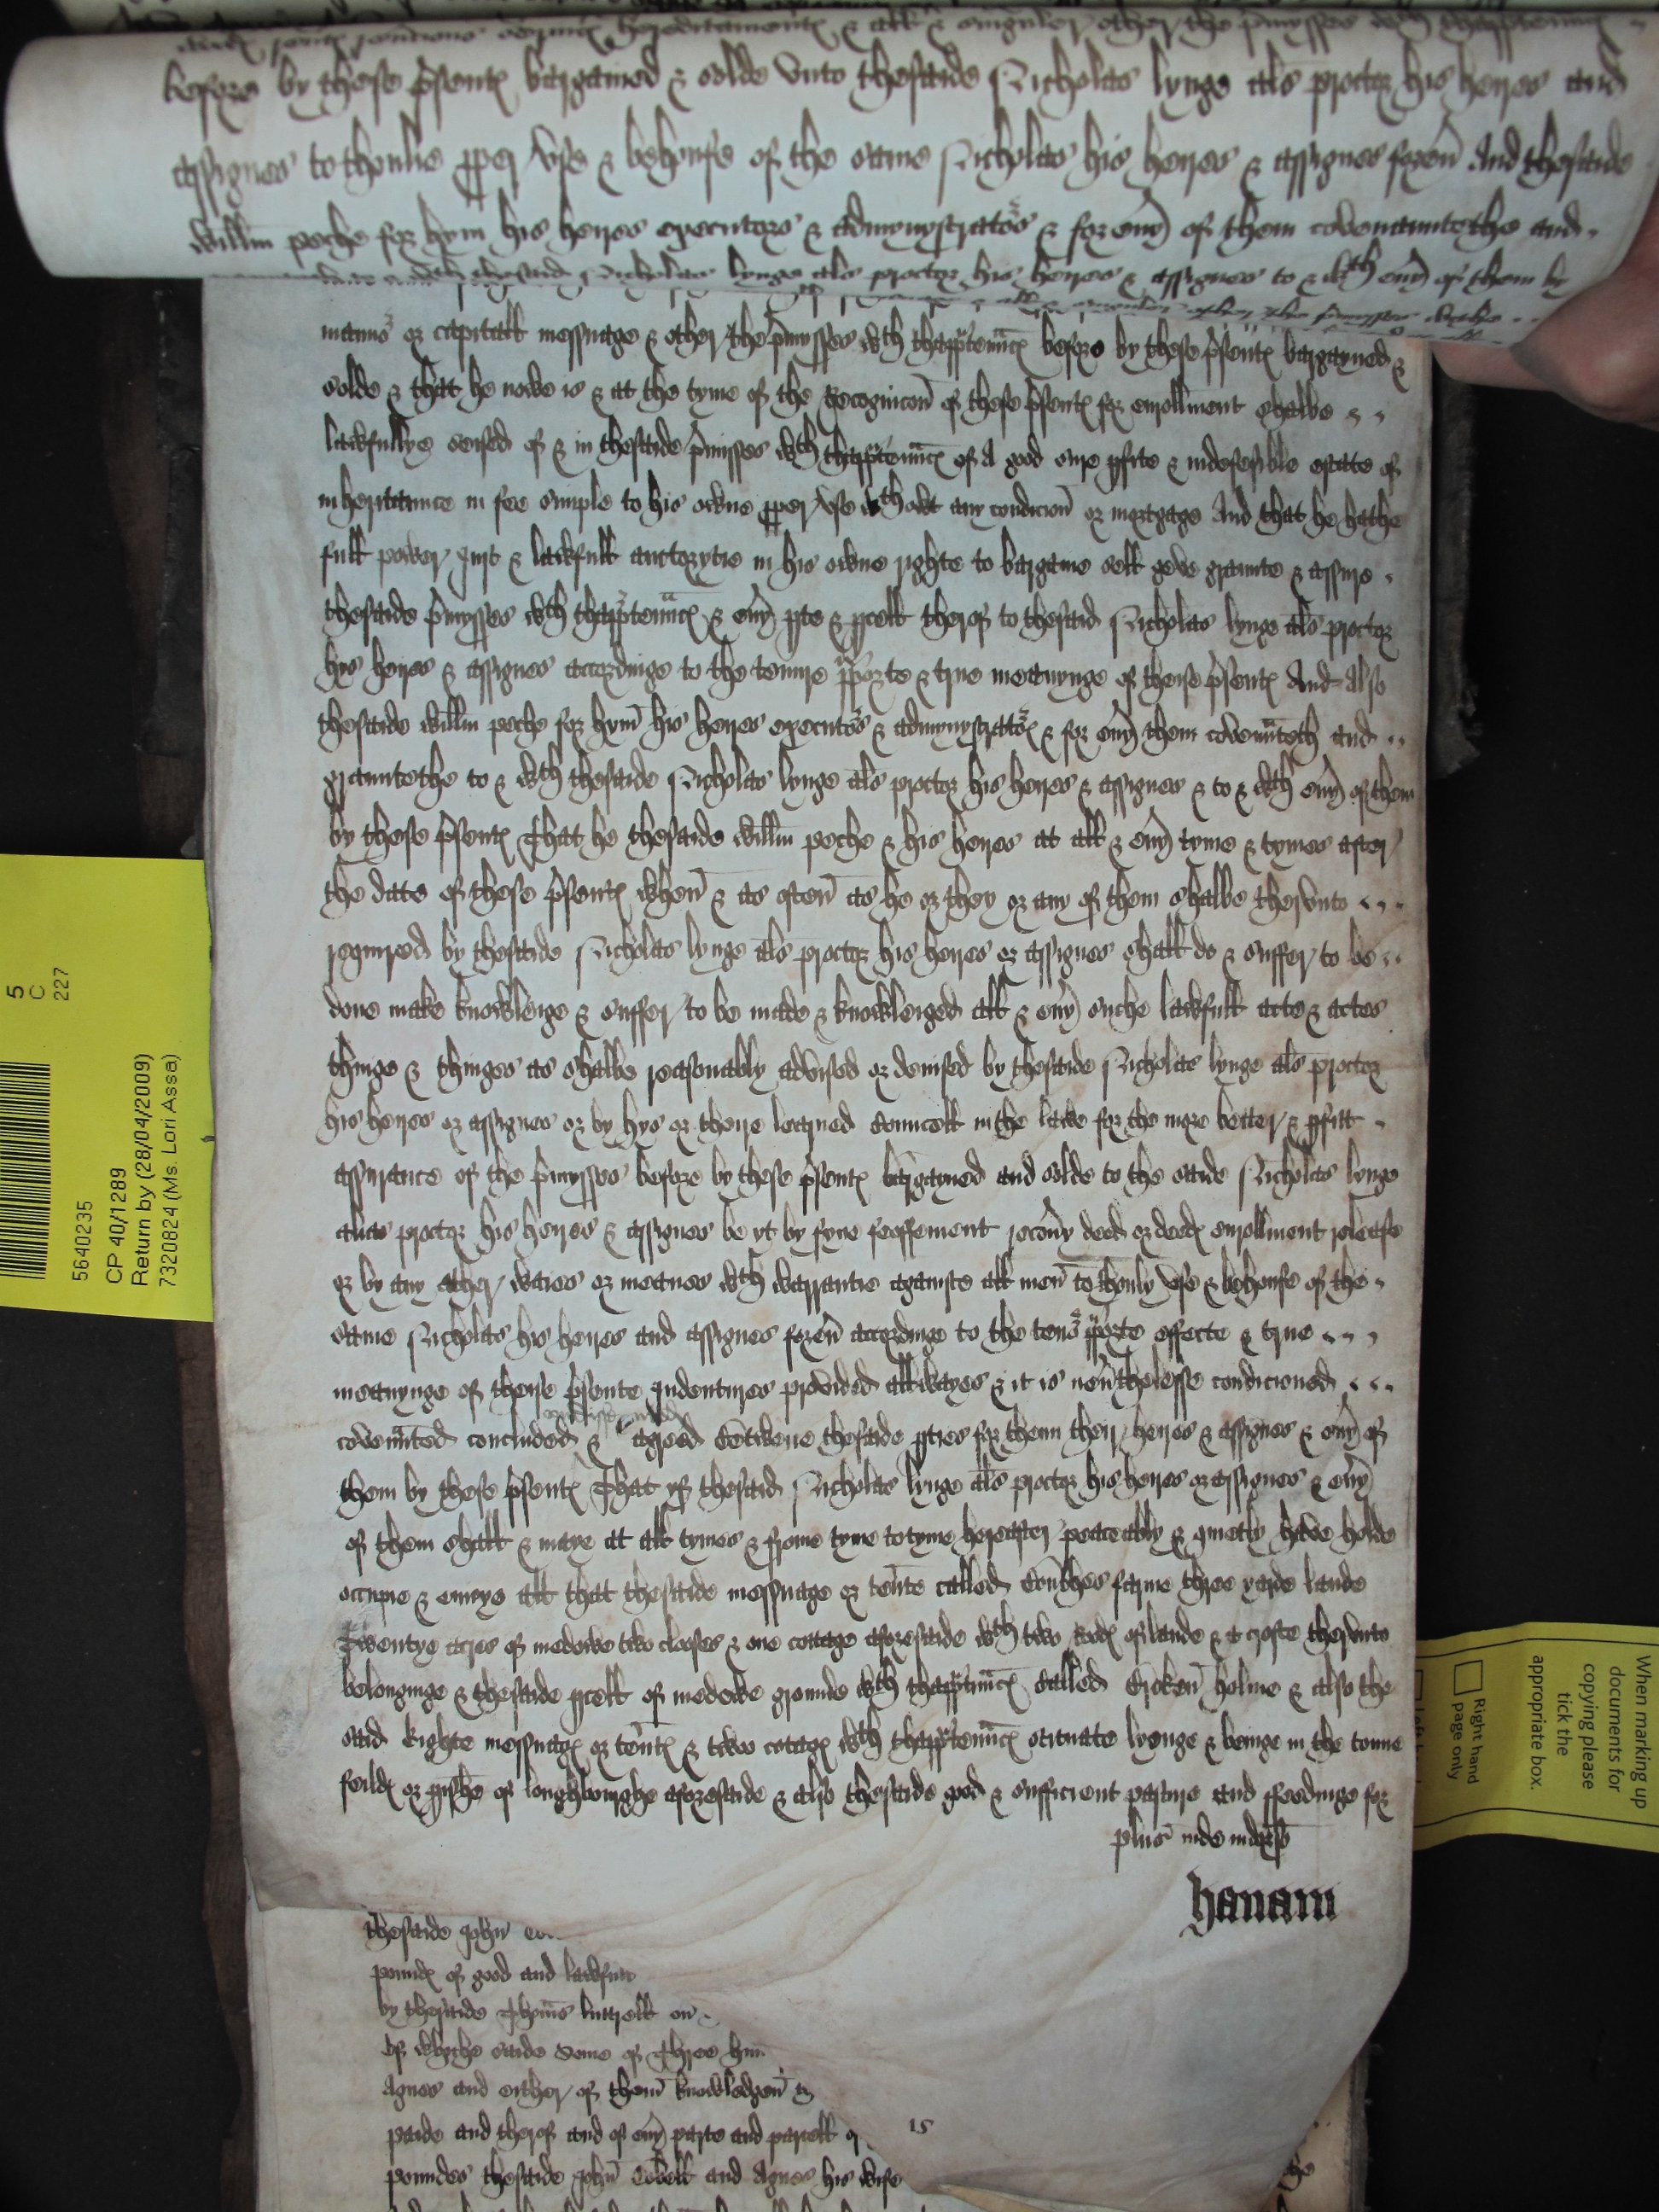 & all & singuler other the p'mysses wth thapp'tennc
before by these p'sent bargained & solde vnto thesaide Nicholas lynge als proctor his heires and
assignes to thonlie pper vse & behoufe of the same Nicholas his heires & assignes foreu' And thesaide
willm peche for hym his heires executors & admynystrators & for eu'y of them covenauntethe and
wth thesaid Nicholas lynge als proctor his heires & assignes to & wth eu'y of them by
mannor or capitall messuage & other the p'mysses wth thapp'tennc before by these p'sent bargayned &
solde & that he nowe is & at the tyme of the Recognicon of these p'sent for enrollment shalbe
lawfullye seised of & in thesaide p'misses wth thapp'tennc of A good sure pfite & indefesible estate of
inheritaunce in fee simple to his owne pper vse wthowt any condicion or mortgage And that he hathe
full power just & lawfull auctorytie in his owne righte to bargaine sell geve graunte & assure
thesaide p'mysses wth thapp'tennc & eu'y pte & pcell therof to thesaid Nicholas lynge als proctor
his heires & assignes accordinge to the tenure p'porte & true meanynge of theise p'sent And Also
thesaide willm peche for hym his heires executors & admynystrator & for eu'y them covennteth and
grauntethe to & wth thesaide Nicholas lynge als proctor his heires & assignes & to & wth eu'y of them
by these p'sent That he thesaide willm peche & his heires at all & eu'y tyme & tymes after
the date of these p'sent when & as often as he or they or any of them shalbe thervnto
requyred by thesaide Nicholas lynge als proctor his heires or assignes shall do & suffer to be
done make knowlege & suffer to be made & knowleged all & eu'y suche lawfull acte & actes
thinge & thinges as shalbe reasonably advised or devised by thesaide Nicholas lynge als proctor
his heires or assignes or by hys or theire learned councell in the lawe for the more better & pfitt
assurance of the p'mysses before by these p'sent bargayned and solde to the saide Nicholas lynge
alias proctor his heires & assignes be yt by fyne feoffement recou'y deed or deed enrollment release
or by any other waies or meanes wth warrantie againste all men to thonly vse & behoufe of the
same Nicholas his heires and assignes foreu' accordinge to the tenor p'porte effecte & true
meanynge of theise p'sente Indentures provided allwayes & it is neu'thelesse condicioned
covennted concluded & agreed Betwene thesaide pties for them their heires & assignes & eu'y of
them by these p'sent That yf thesaid Nicholas lynge als proctor his heires or assignes & eu'y
of them shall & maye at all tymes & frome tyme to tyme hereafter peaceably & quietly have holde
occupie & enioye all that thesaide messuage or tente called farme three yarde lande
Twentye acres of medowe two closes & one cottage aforesaide wth two of lande & a crofte thervnto
belonginge & thesaide pcell of medowe grounde wth thapp'tinnc called Broken holme & also the
said Eighte messuag or tent & twoo cotag wth thapp'tennc scituate lyenge & beinge in the towne
feild or pishe of loughbourghe aforesaide & also thesaide good & sufficient pasture and ffeedinge for
plus inde indorso
hanam
thesaide John
pound of good and lawfull
by thesaide Thoms luttrell
Of whyche saide some of Three
Agnes and either of them knowledgen
paide and therof and of eu'y parte and parcell
poundes thesaide John and Agnes his wife
15
5
C
227
5640235
CP 40/1289
Return by (28/04/2009)
7320824 (Ms. Lori Assa)
When marking up
documents for
copying please
tick the
appropriate box.
Right hand
page only